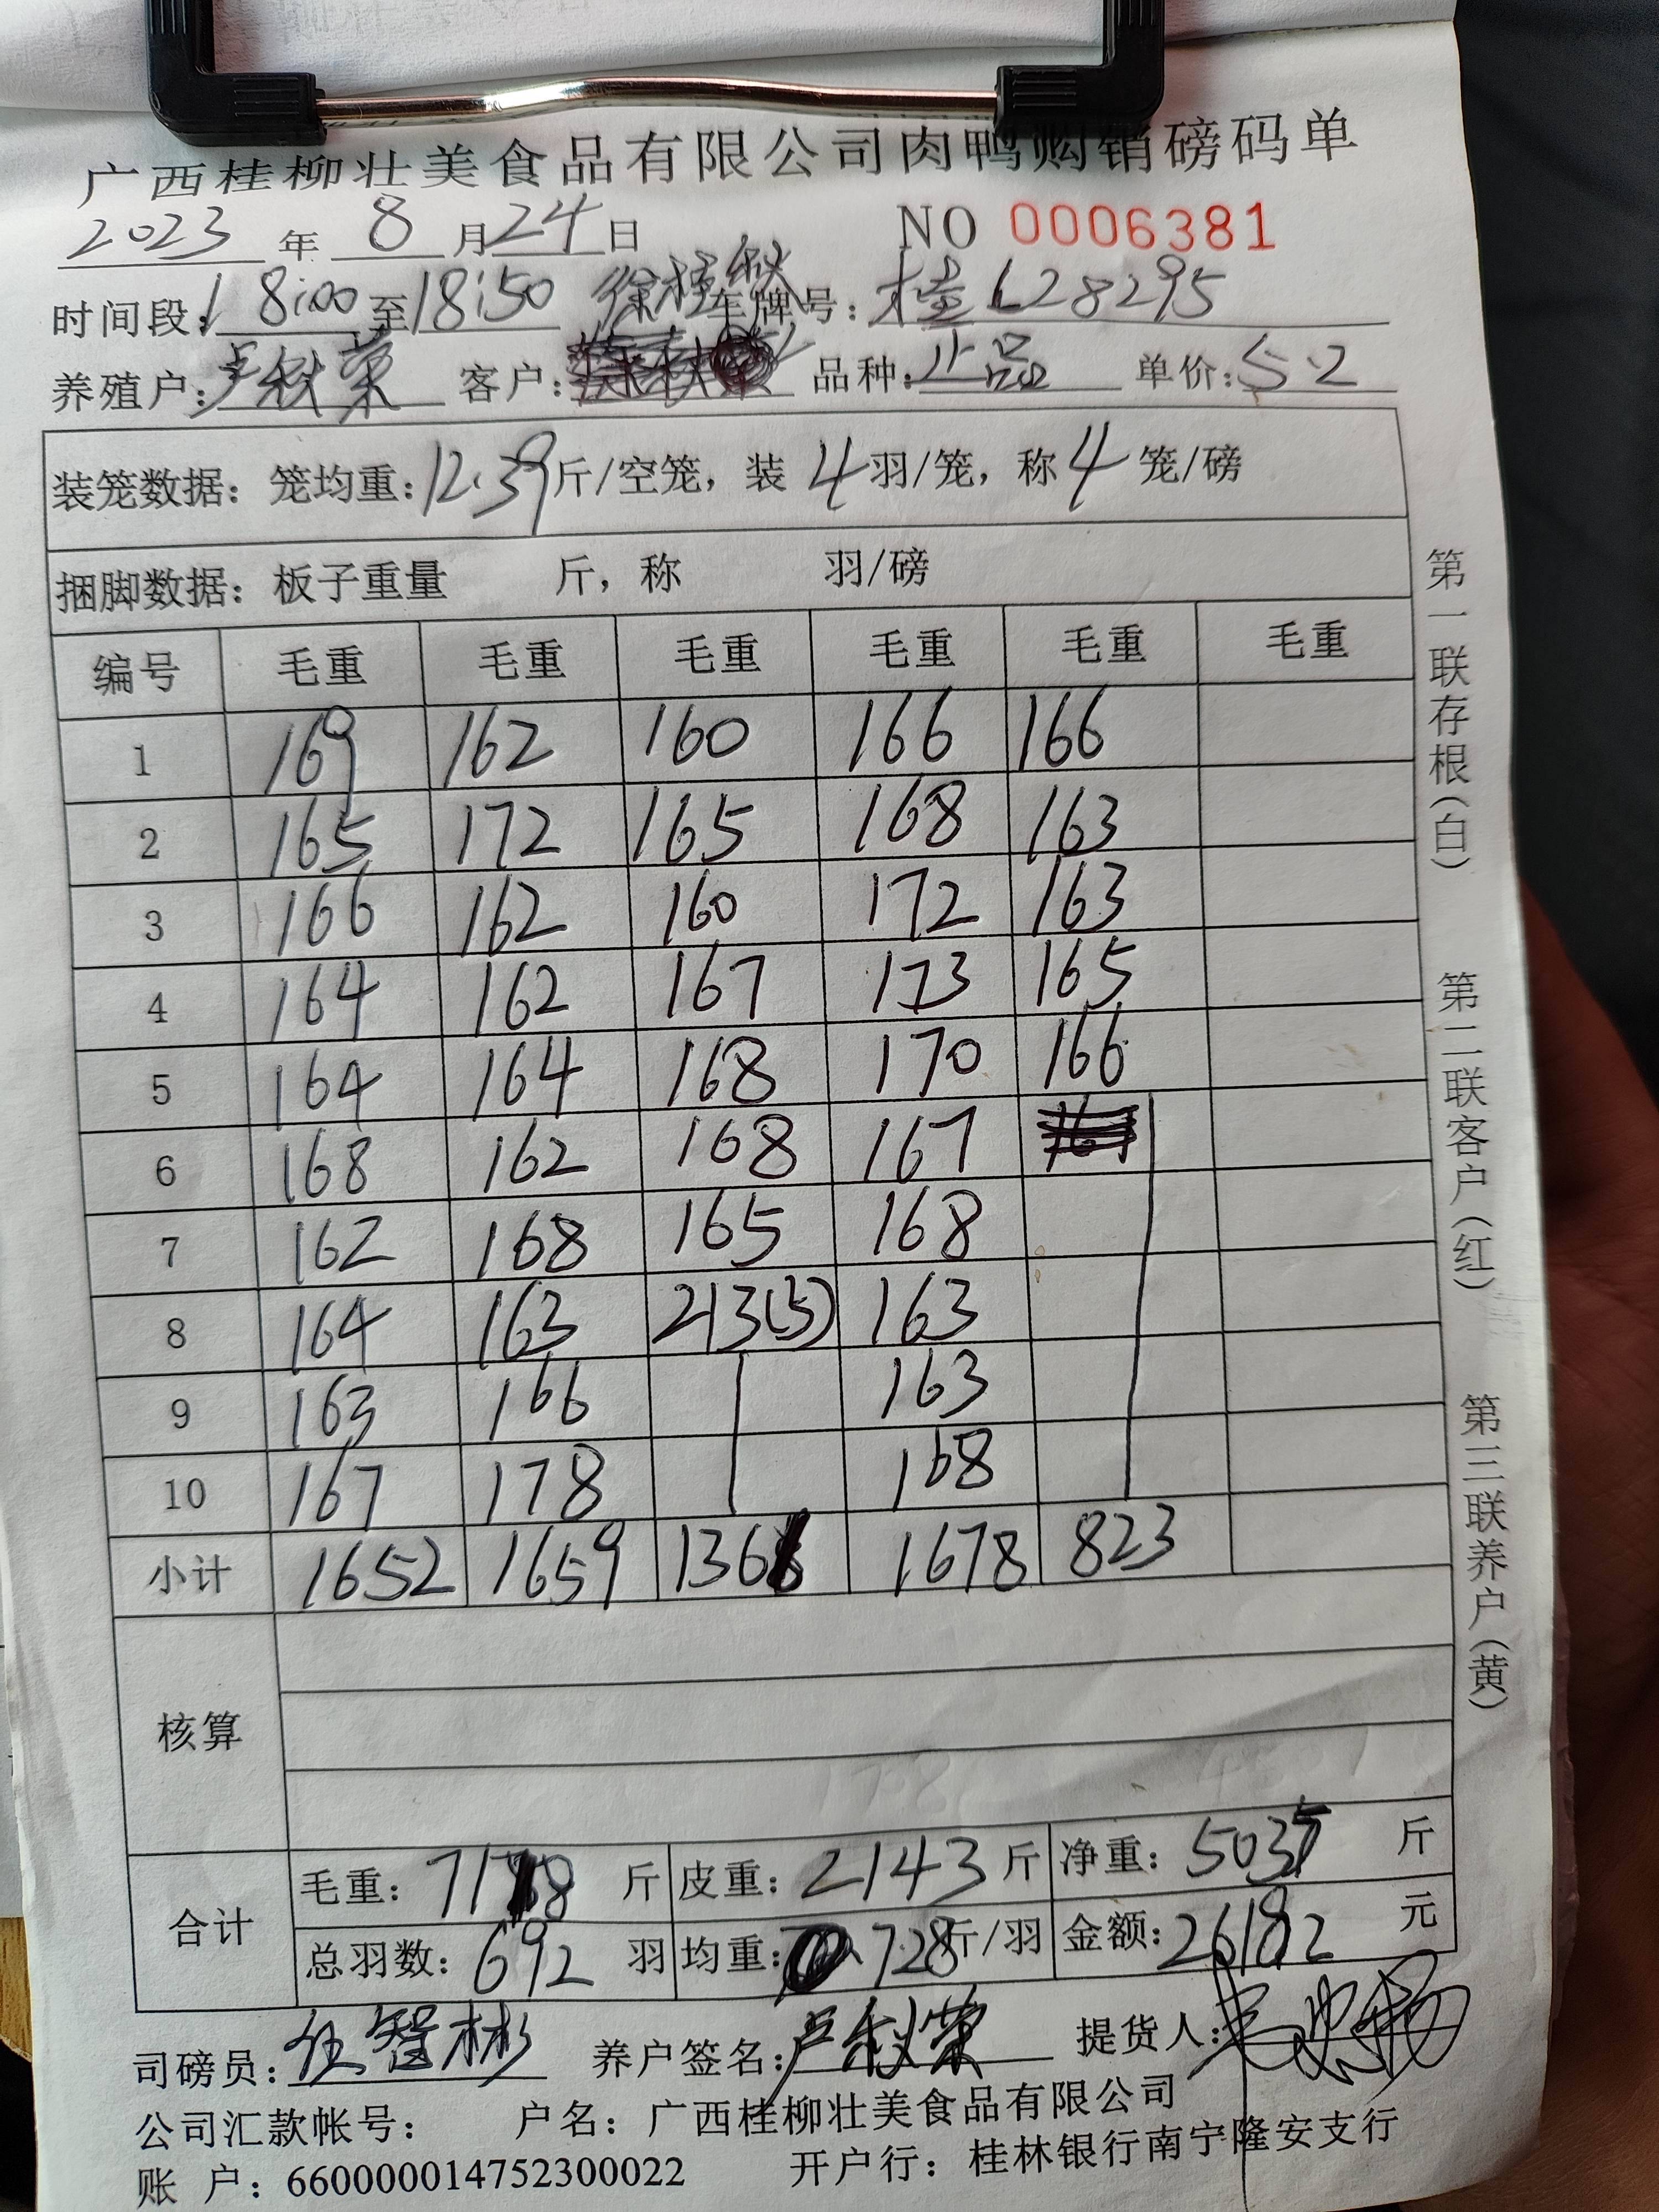 广西桂柳壮美食品有限公司肉鸭购销磅码单
2023 年 8 月 24 日 NO 0006381
时间段: 18:00 至 18:50 徐桂秋 车牌号: 桂L28295
养殖户: 卢秋荣 客户: 品种: 正品 单价: 5.2
装笼数据: 笼均重: 12.39 斤/空笼, 装 4 羽/笼, 称 4 笼/磅
捆脚数据: 板子重量 斤, 称 羽/磅
编号 毛重 毛重 毛重 毛重 毛重 毛重
1 169 162 160 166 166
2 165 172 165 168 163
3 166 162 160 172 163
4 164 162 167 173 165
5 164 164 168 170 166
6 168 162 168 167
7 162 168 165 168
8 164 163 213(5) 163
9 163 166 163
10 167 178 168
小计 1652 1659 1366 1678 823
核算
合计 毛重: 7178 斤 皮重: 2143 斤 净重: 5035 斤
总羽数: 692 羽 均重: 7.28 斤/羽 金额: 26182 元
司磅员: 伍智彬 养户签名: 卢秋荣 提货人:
公司汇款帐号: 户名: 广西桂柳壮美食品有限公司
账 户: 660000014752300022 开户行: 桂林银行南宁隆安支行
第一联存根(白) 第二联客户(红) 第三联养户(黄)